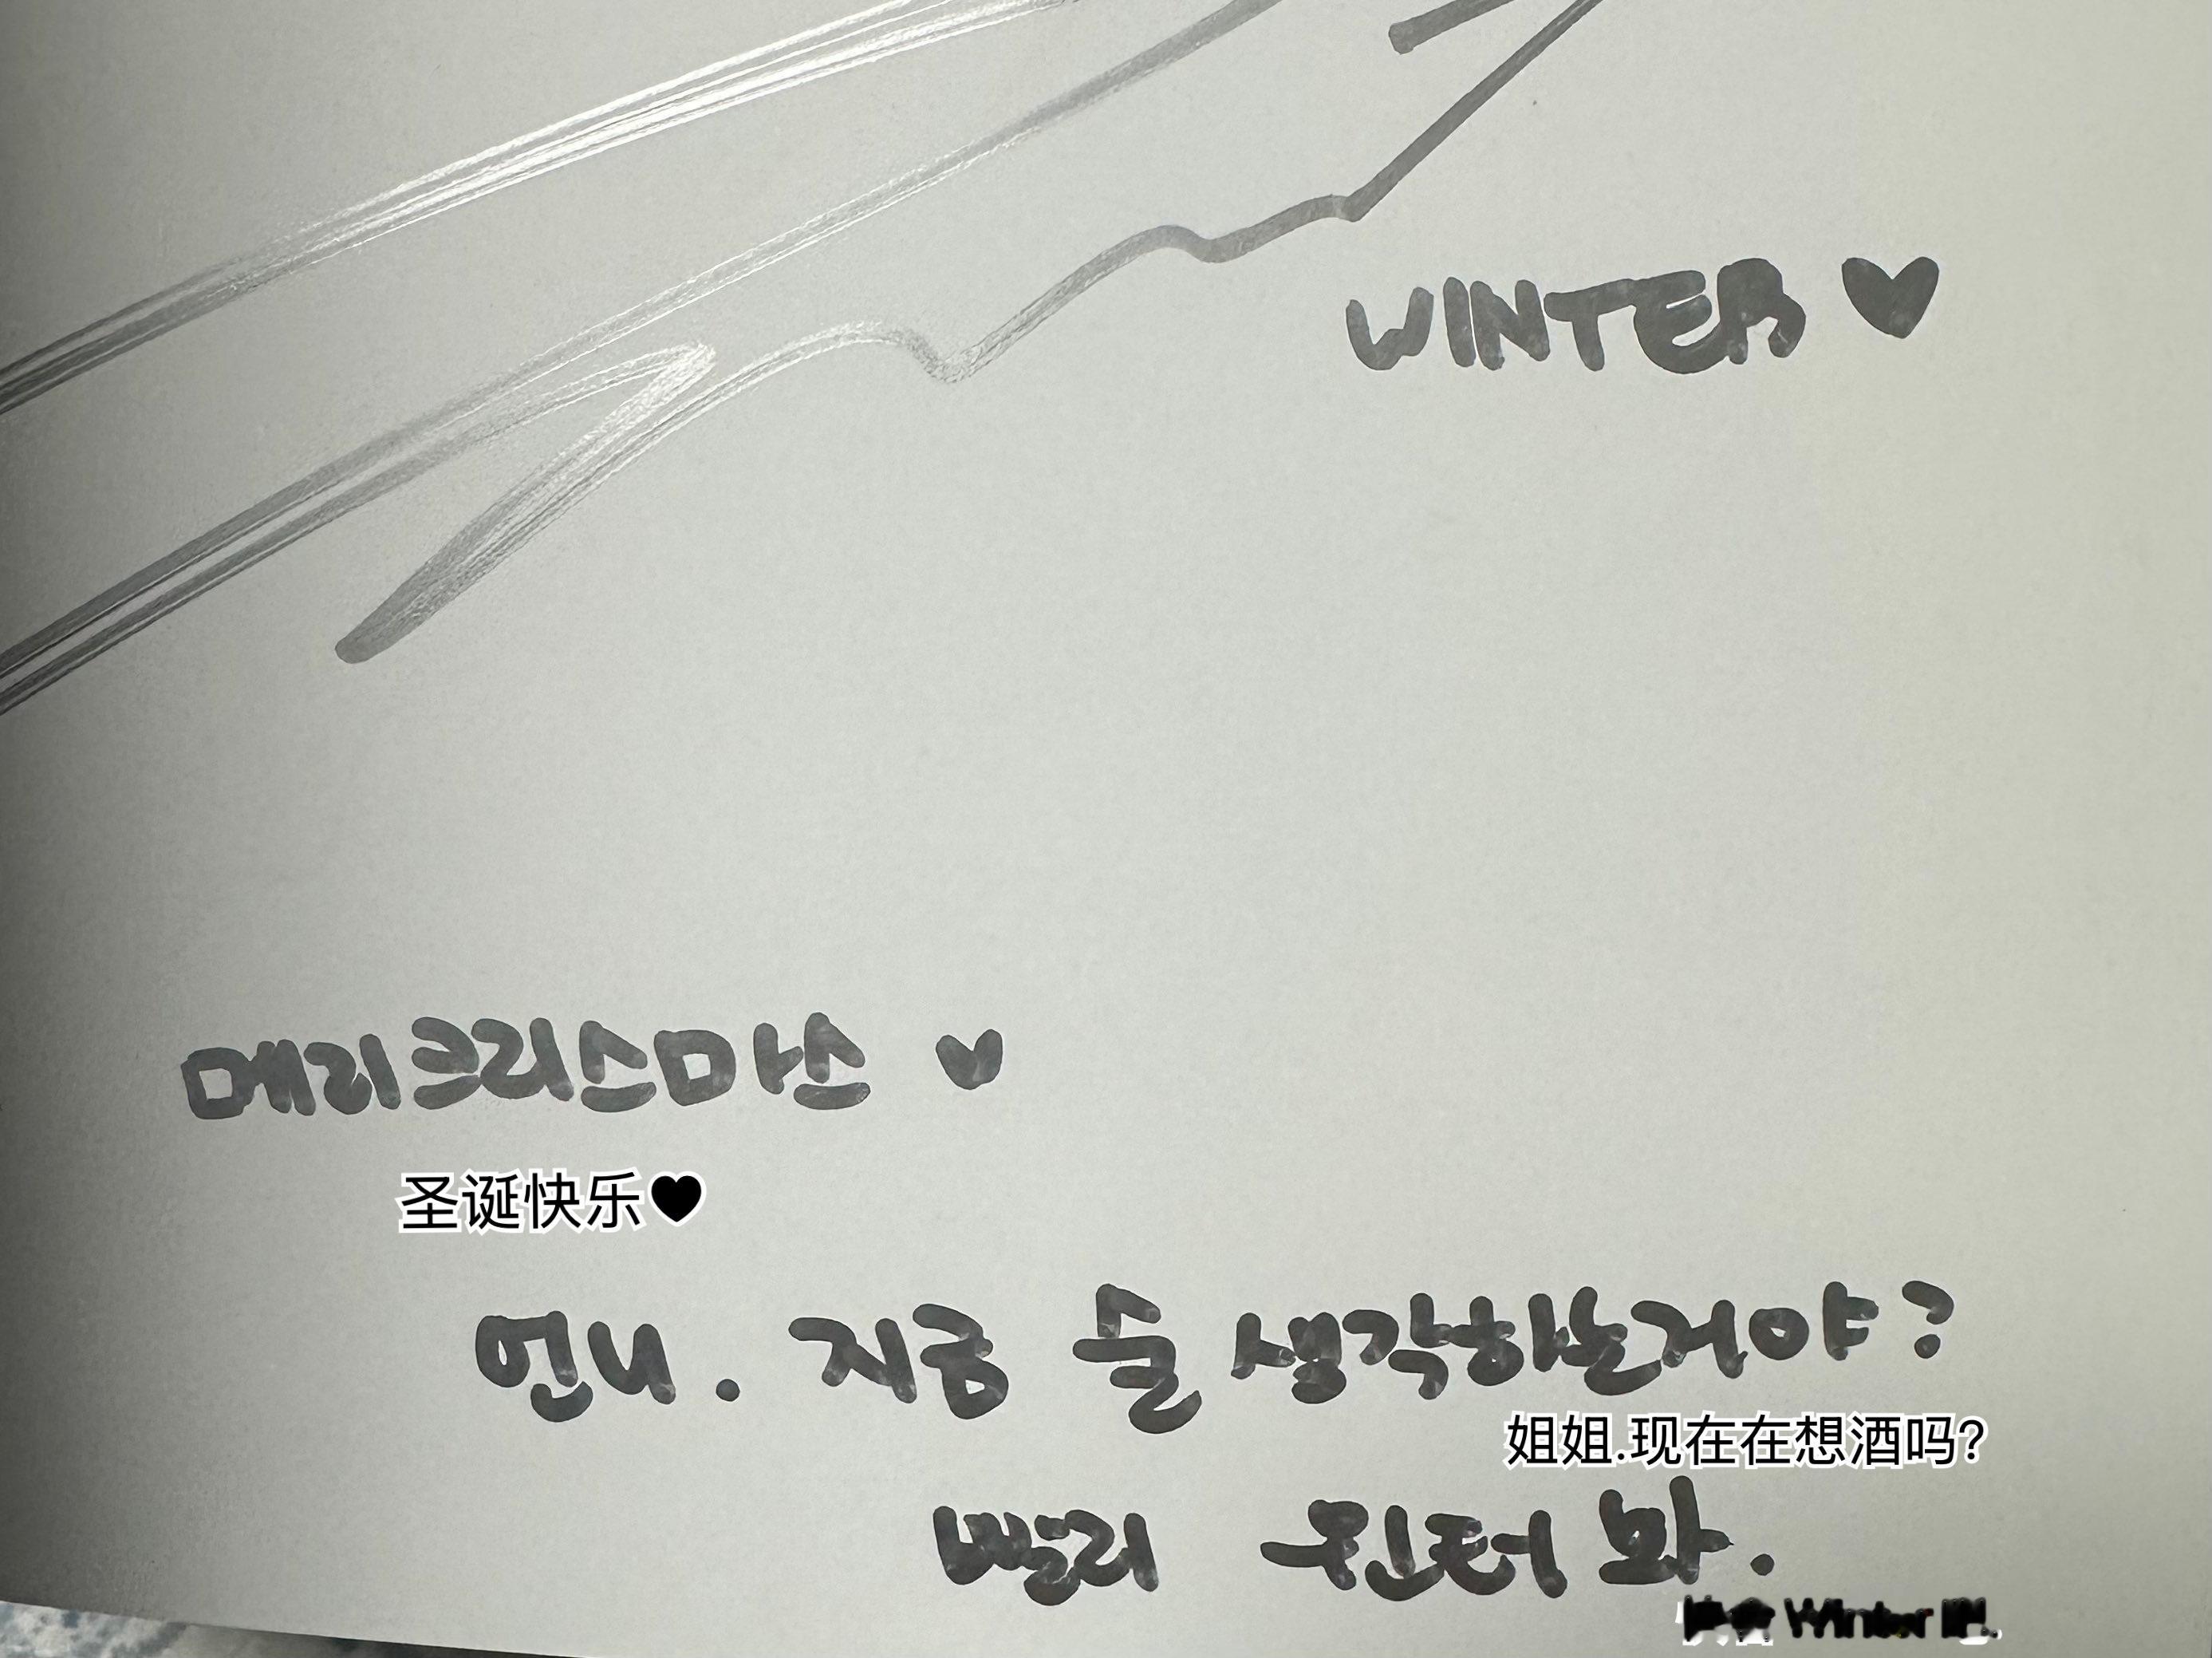 WINTER ♥
메리크리스마스 ♥
圣诞快乐♥
언니. 지금 술 생각하는거야?
姐姐.现在在想酒吗?
빨리 윈터 봐.
Winter 吧.